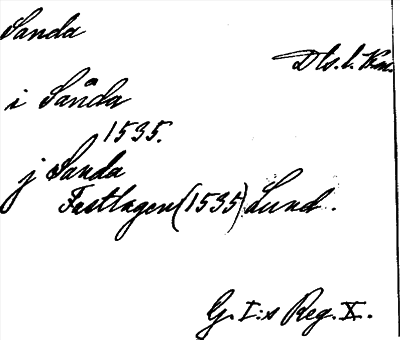 Sanda
Dls. l. Kn.
i Sånda
1535.
j Sanda
Fastlagen (1535) Lund.
G. I:s Reg. X.